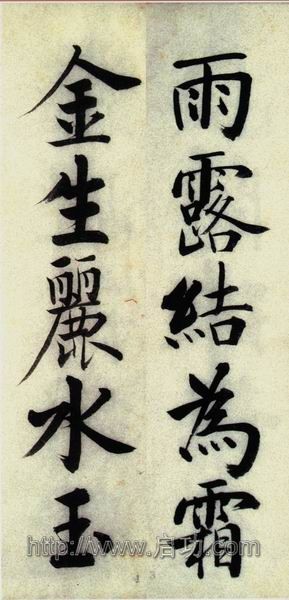 雨露結為霜
金生麗水玉
http://www.启功.com